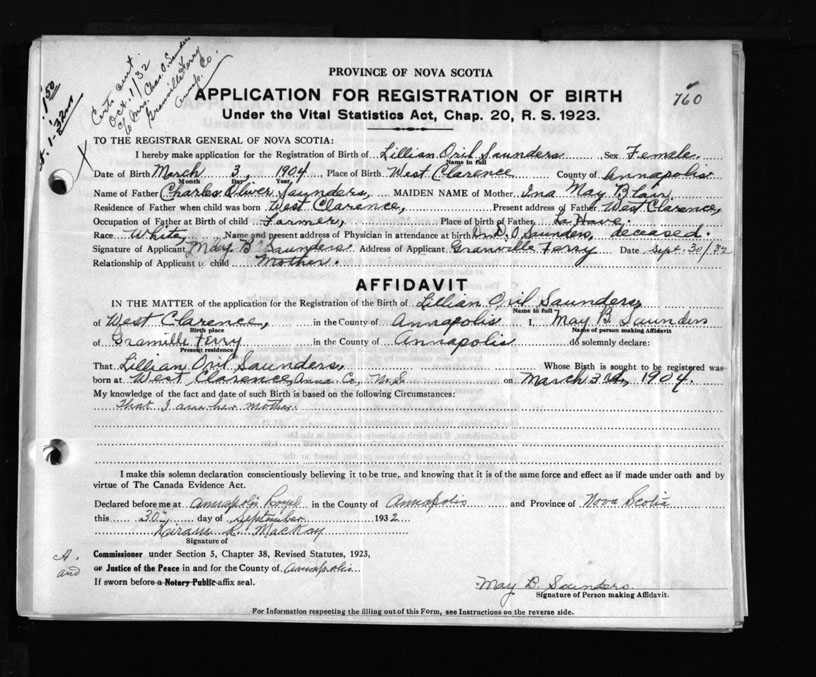 1.50
Oct. 1/32
c/o Mrs. Chas. O. Saunders
Granville Ferry
Annap. Co.
760
PROVINCE OF NOVA SCOTIA
APPLICATION FOR REGISTRATION OF BIRTH
Under the Vital Statistics Act, Chap. 20, R. S. 1923.
TO THE REGISTRAR GENERAL OF NOVA SCOTIA:
I hereby make application for the Registration of Birth of Lillian Oril Saunders Sex Female
Name in full
Date of Birth March 3, 1904 Place of Birth West Clarence County of Annapolis
Month Day Year
Name of Father Charles Oliver Saunders, MAIDEN NAME of Mother Ina May B Lain
Residence of Father when child was born West Clarence, Present address of Father West Clarence,
Occupation of Father at Birth of child Farmer, Place of birth of Father La Have
Race White Name and present address of Physician in attendance at birth Saunders, deceased.
Signature of Applicant May B Saunders Address of Applicant Granville Ferry Date Sept. 30/32
Relationship of Applicant to child Mother.
AFFIDAVIT
IN THE MATTER of the application for the Registration of the Birth of Lillian Oril Saunders,
Name in full
of West Clarence, in the County of Annapolis I, May B. Saunders
Birth place Name of person making Affidavit
of Granville Ferry in the County of Annapolis do solemnly declare:
Present residence
That Lillian Oril Saunders, Whose Birth is sought to be registered was
born at West Clarence, Anna. Co., N.S. on March 3rd, 1904.
My knowledge of the fact and date of such Birth is based on the following Circumstances:
That I am her mother
I make this solemn declaration conscientiously believing it to be true, and knowing that it is of the same force and effect as if made under oath and by
virtue of The Canada Evidence Act.
Declared before me at Annapolis Royal in the County of Annapolis and Province of Nova Scotia
this 30th day of September 1932
Hiram R. MacKay
Signature of
A Commissioner under Section 5, Chapter 38, Revised Statutes, 1923,
and or Justice of the Peace in and for the County of Annapolis
If sworn before a Notary Public affix seal.
May B. Saunders
Signature of Person making Affidavit.
For Information respecting the filling out of this Form, see Instructions on the reverse side.